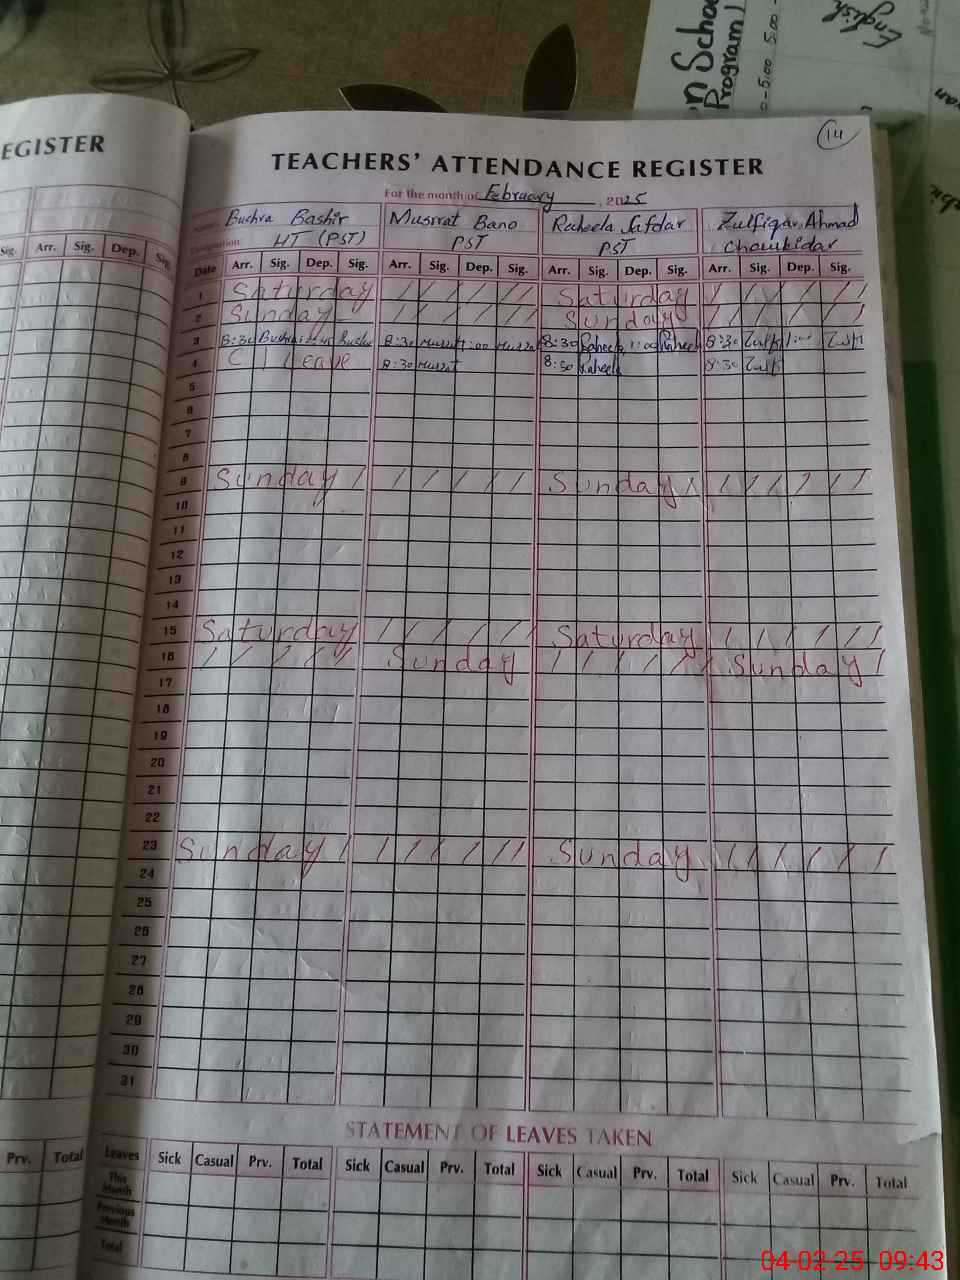 on School
Program
English
EGISTER
14
TEACHERS' ATTENDANCE REGISTER
For the month of February, 2025
Bushra Bashir Musrrat Bano Raheela Safdar Zulfiqar Ahmad
Designation HT (PST) PST PST Chowkidar
Sig. Arr. Sig. Dep. Sig.
Date Arr. Sig. Dep. Sig. Arr. Sig. Dep. Sig. Arr. Sig. Dep. Sig. Arr. Sig. Dep. Sig.
1 Saturday Saturday
2 Sunday Sunday
3 8:30 Bushra Bushra 8:30 Musrrat 1:00 Musrrat 8:30 Raheela 1:00 Raheela 8:30 Zulfi 1:00 Zulfi
4 C Leave 8:30 Musrrat 8:30 Raheela 8:30 Zulfi
5
6
7
8
9 Sunday Sunday
10
11
12
13
14
15 Saturday Saturday
16 Sunday Sunday
17
18
19
20
21
22
23 Sunday Sunday
24
25
26
27
28
29
30
31
STATEMENT OF LEAVES TAKEN
Prv. Total
Leaves Sick Casual Prv. Total Sick Casual Prv. Total Sick Casual Prv. Total Sick Casual Prv. Total
This Month
Previous Month
Total
04-02-25 09:43